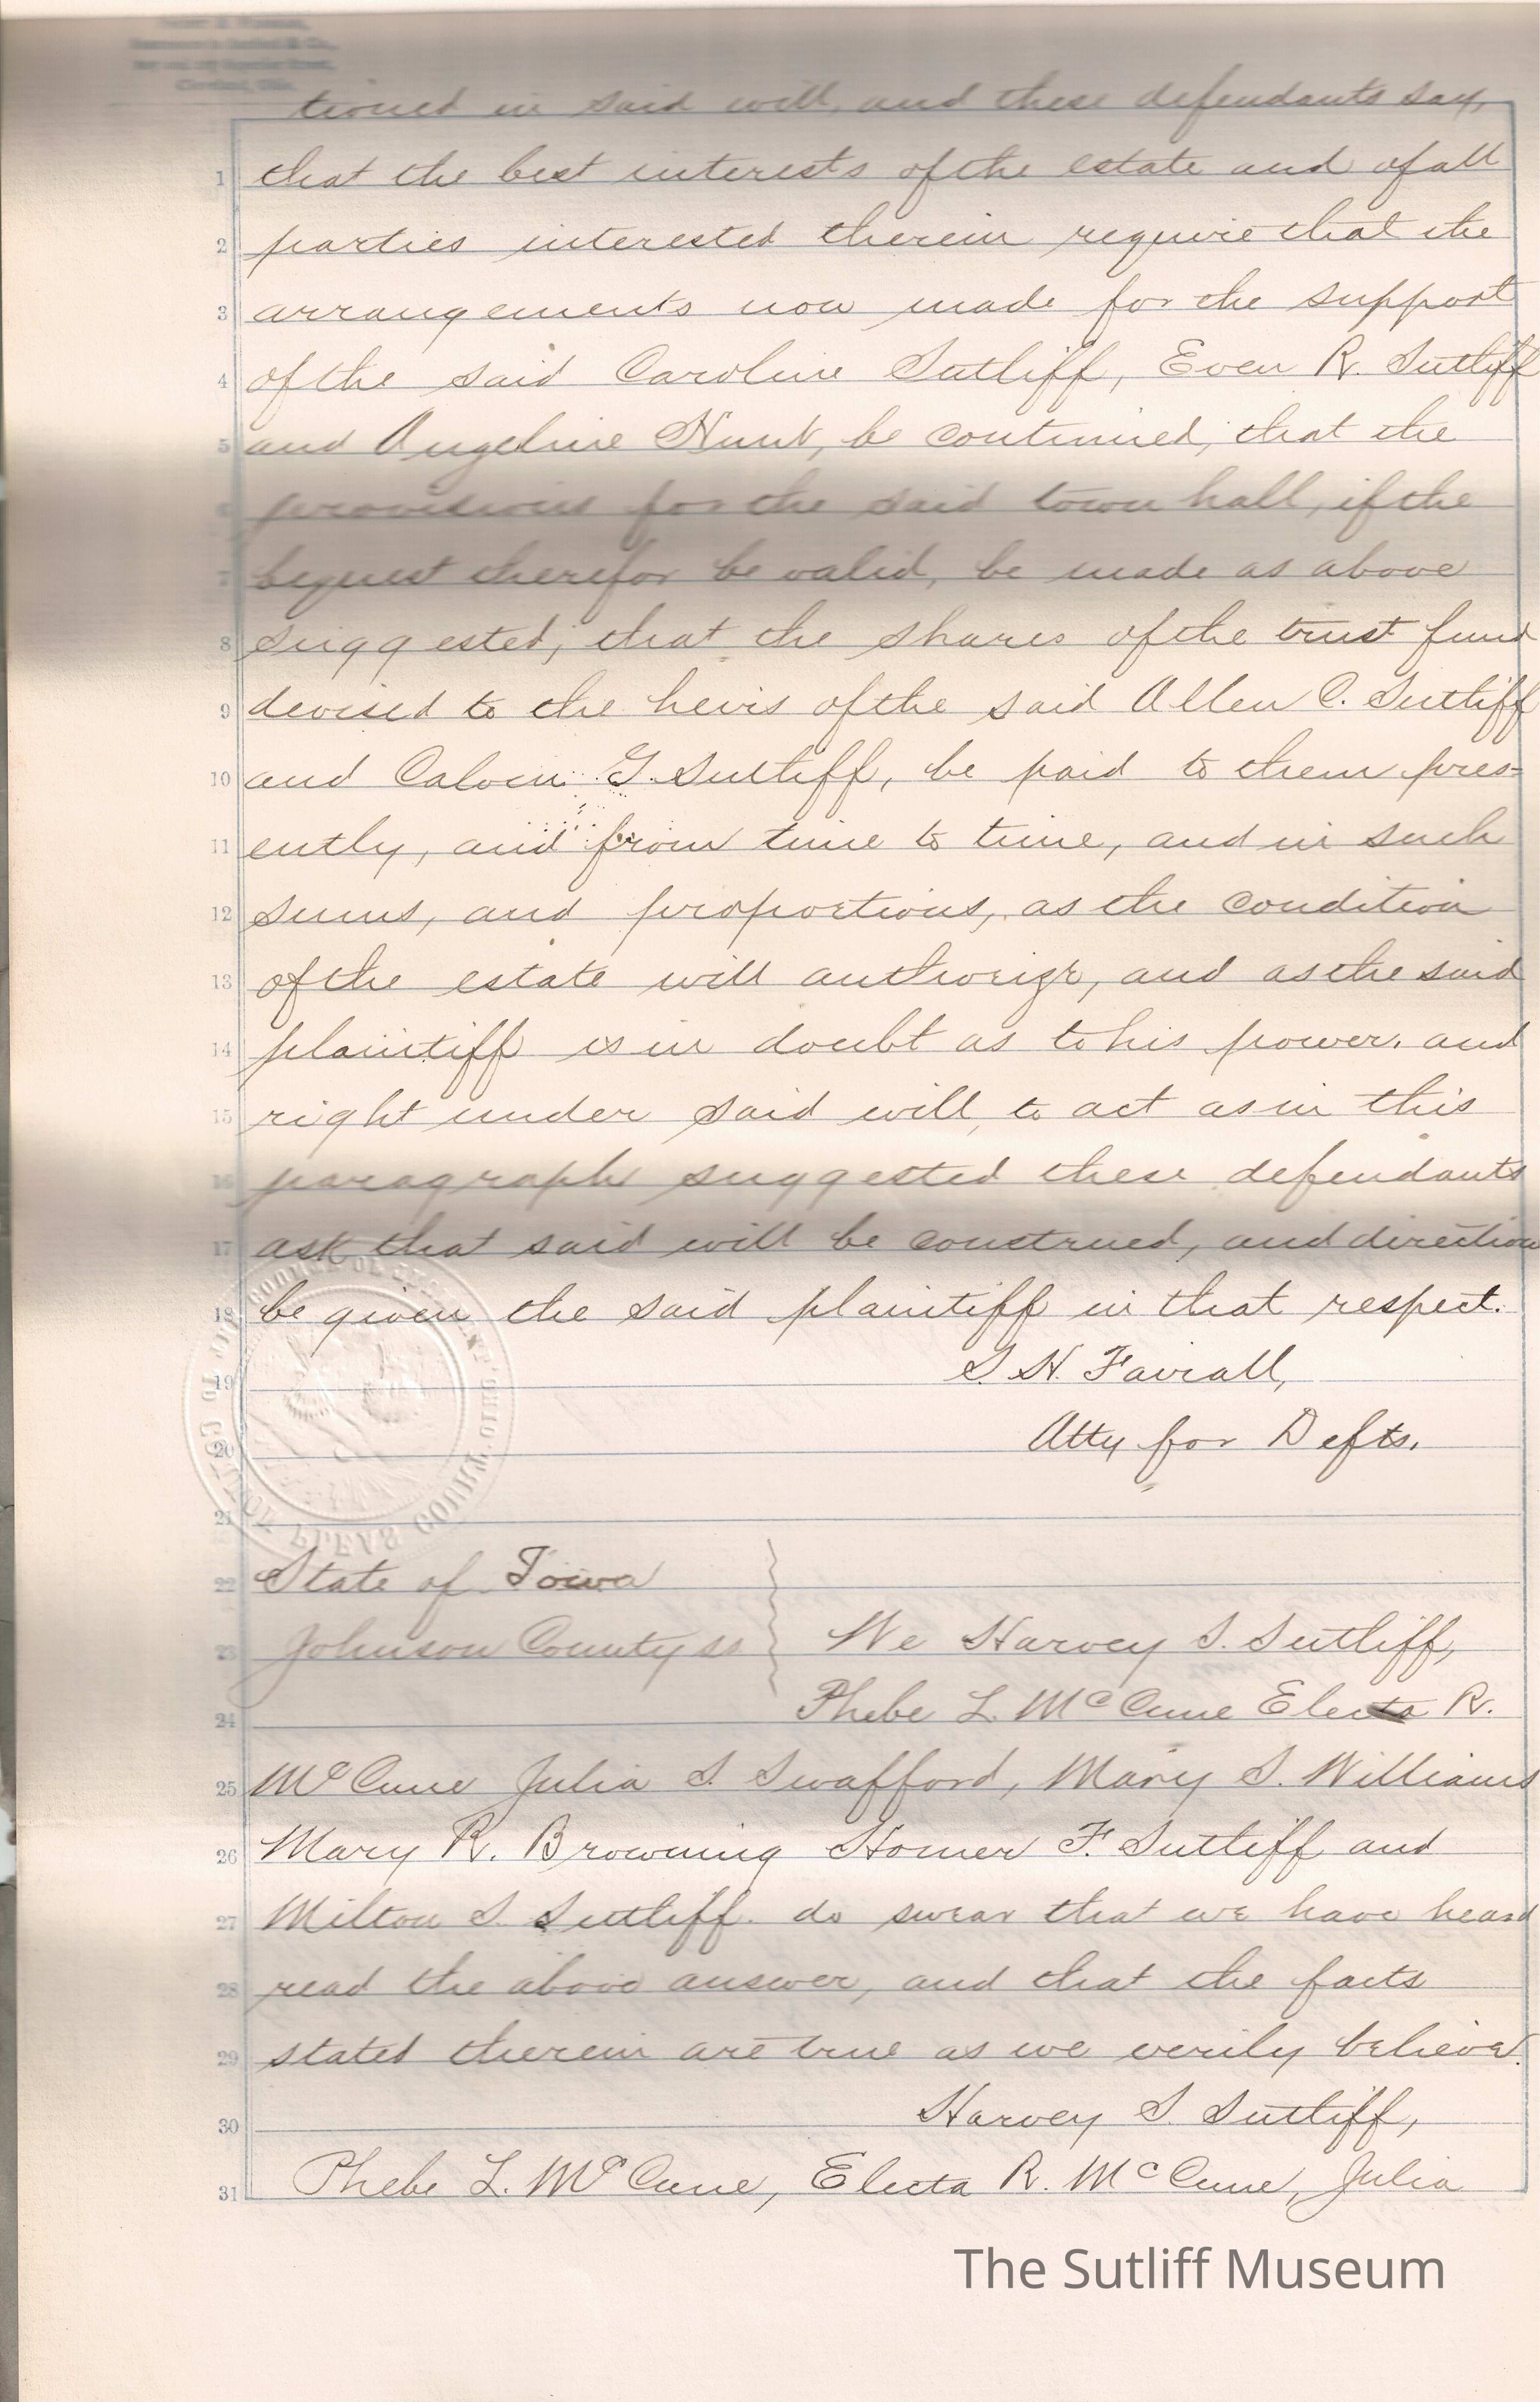 tioned in said will, and these defendants say,
1 that the best interests of the estate and of all
2 parties interested therein require that the
3 arrangements now made for the support
4 of the said Caroline Sutliff, Even R. Sutliff
5 and Angeline Hunt, be continued; that the
6 provisions for the said town hall, if the
7 bequest therefor be valid, be made as above
8 suggested; that the shares of the trust fund
9 devised to the heirs of the said Allen C. Sutliff
10 and Calvin G. Sutliff, be paid to them pres=
11 ently, and from time to time, and in such
12 sums, and proportions, as the condition
13 of the estate will authorize, and as the said
14 plaintiff is in doubt as to his power, and
15 right under said will, to act as in this
16 paragraph suggested these defendants
17 ask that said will be construed, and direction
18 be given the said plaintiff in that respect.
19 S. H. Fairall,
20 Atty for Defts.
21
22 State of Iowa
23 Johnson County ss We Harvey S. Sutliff,
24 Phebe L. McCune Electa R.
25 McCune Julia S. Swafford, Mary S. Williams
26 Mary R. Browning Homer F. Sutliff and
27 Milton S. Sutliff. do swear that we have heard
28 read the above answer, and that the facts
29 stated therein are true as we verily believe.
30 Harvey S. Sutliff,
31 Phebe L. McCune, Electa R. McCune, Julia
The Sutliff Museum